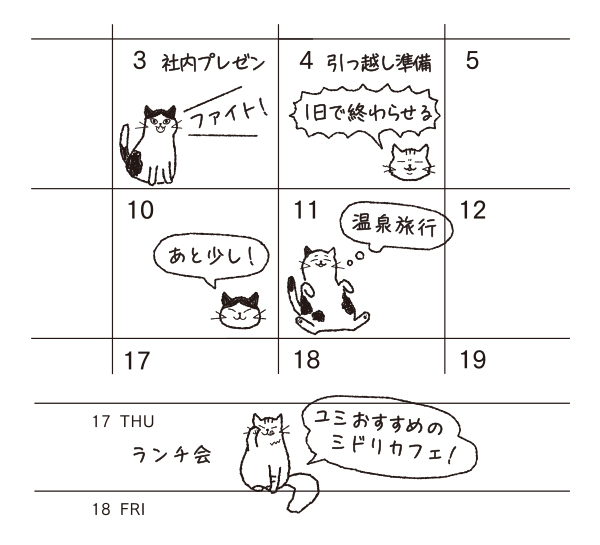 3 社内プレゼン
ファイト!
4 引っ越し準備
1日で終わらせる
5
10
あと少し!
11
温泉旅行
12
17
18
19
17 THU
ランチ会
ユミおすすめの
ミドリカフェ!
18 FRI